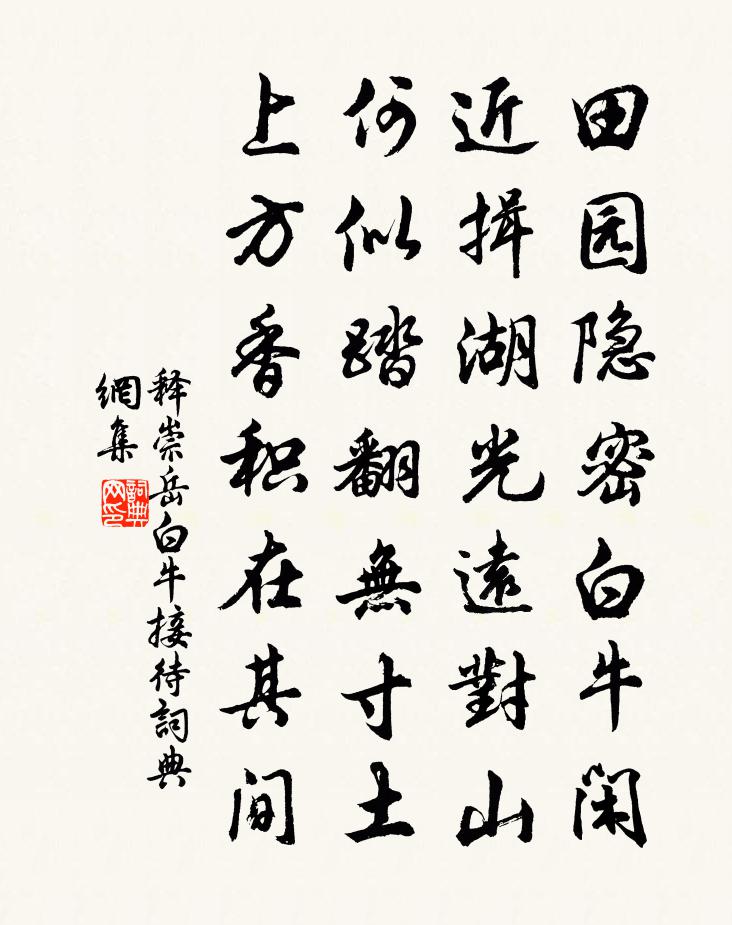 田园隐密白牛闲
近揖湖光遠對山
何似踏翻無寸土
上方香积在其间
释崇岳白牛接待詞典
網集
詞典
网印